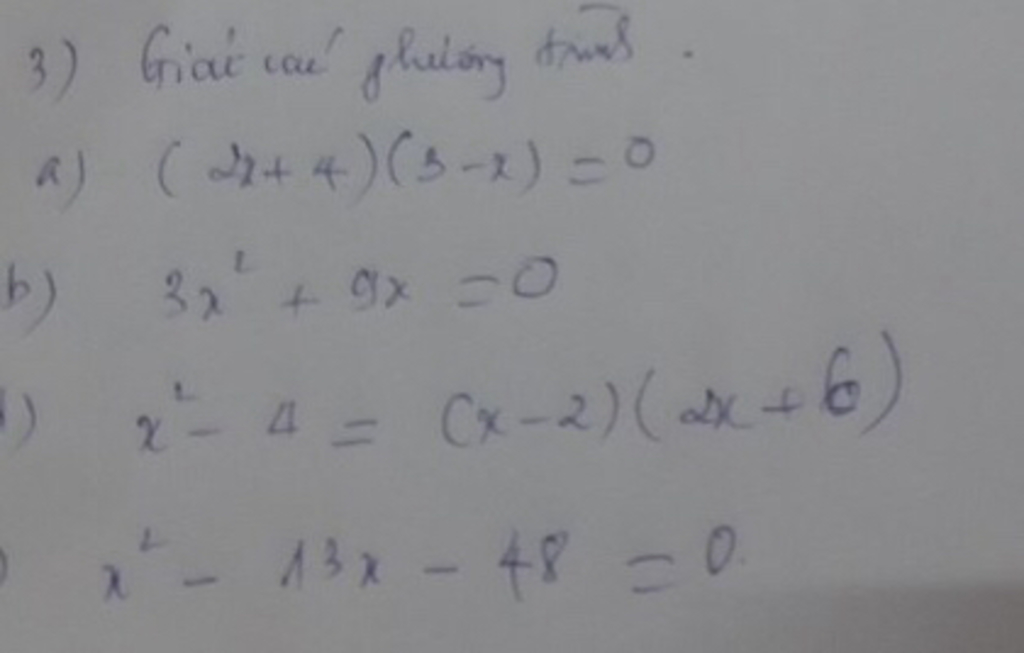 3) Giải các phương trình.
a) (2x + 4)(3 - x) = 0
b) 3x² + 9x = 0
) x² - 4 = (x - 2)(2x + 6)
) x² - 13x - 48 = 0.